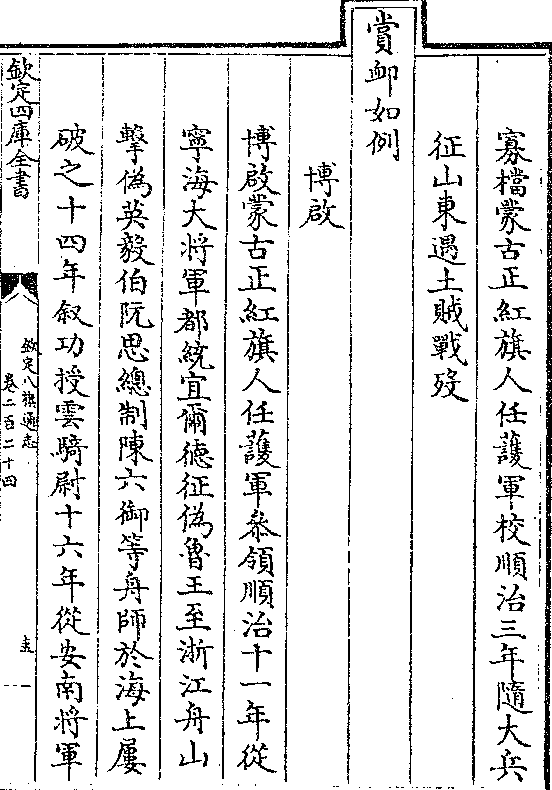 寡檔蒙古正紅旗人任護軍校順治三年隨大兵
征山東遇土賊戰歿
賞卹如例
博啟
博啟蒙古正紅旗人任護軍叅領順治十一年從
寧海大將軍都統宜爾德征偽魯王至浙江舟山
擊偽英毅伯阮思總制陳六御等舟師於海上屢
破之十四年叙功授雲騎尉十六年從安南將軍
欽定四庫全書
欽定八旗通志
卷二百二十四